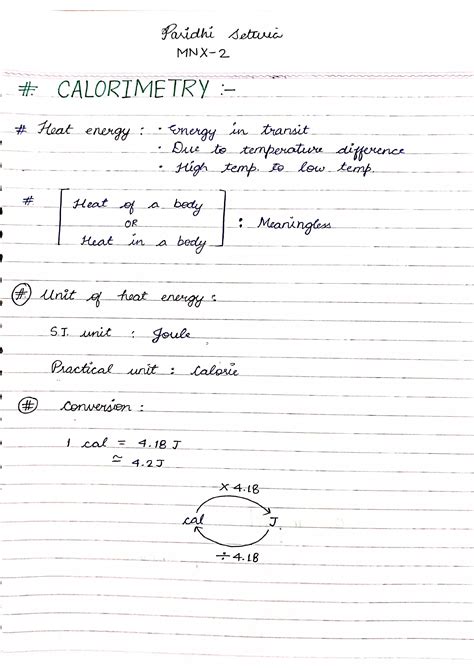 Paridhi Seturia
MNX-2
# CALORIMETRY :-
# Heat energy : • Energy in transit
• Due to temperature difference
• High temp. to low temp.
# [ Heat of a body
OR
Heat in a body ] : Meaningless
# Unit of heat energy :
S.I. unit : Joule
Practical unit : Calorie
# Conversion :
1 cal = 4.18 J
≃ 4.2 J
× 4.18
cal J
÷ 4.18